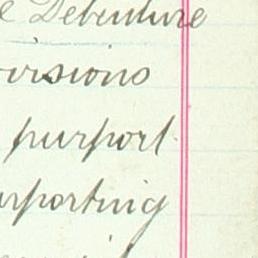 e Debenture
visions
purport
urporting